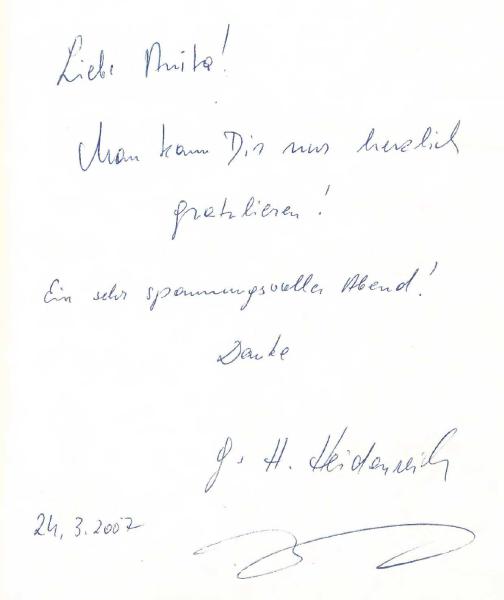 Liebe Anita!
Man kann Dir nur herzlich
gratulieren!
Ein sehr spannungsvoller Abend!
Danke
G. H. Heidenreich
24.3.2007